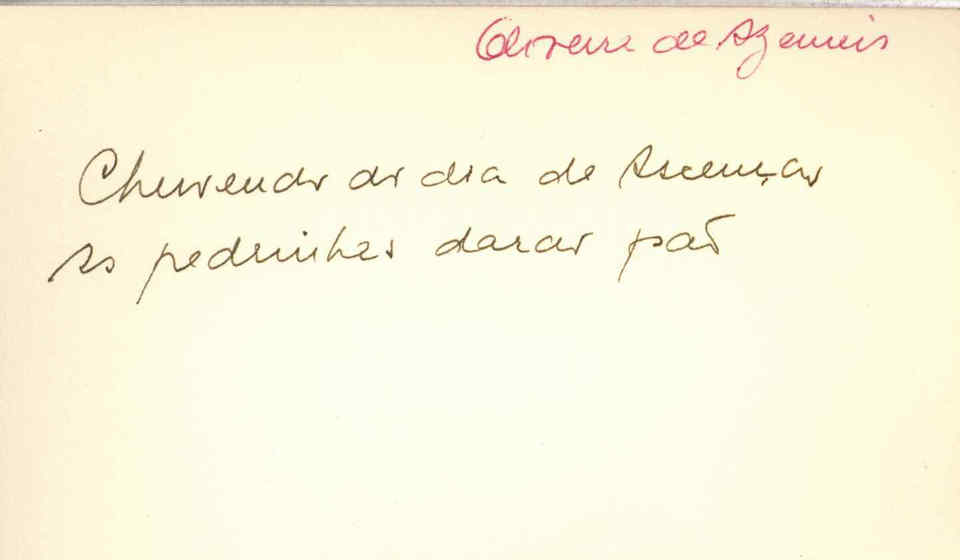 Oliveira de Azemeis
Chovendo do dia de Ascenção
As pedrinhas darão pão